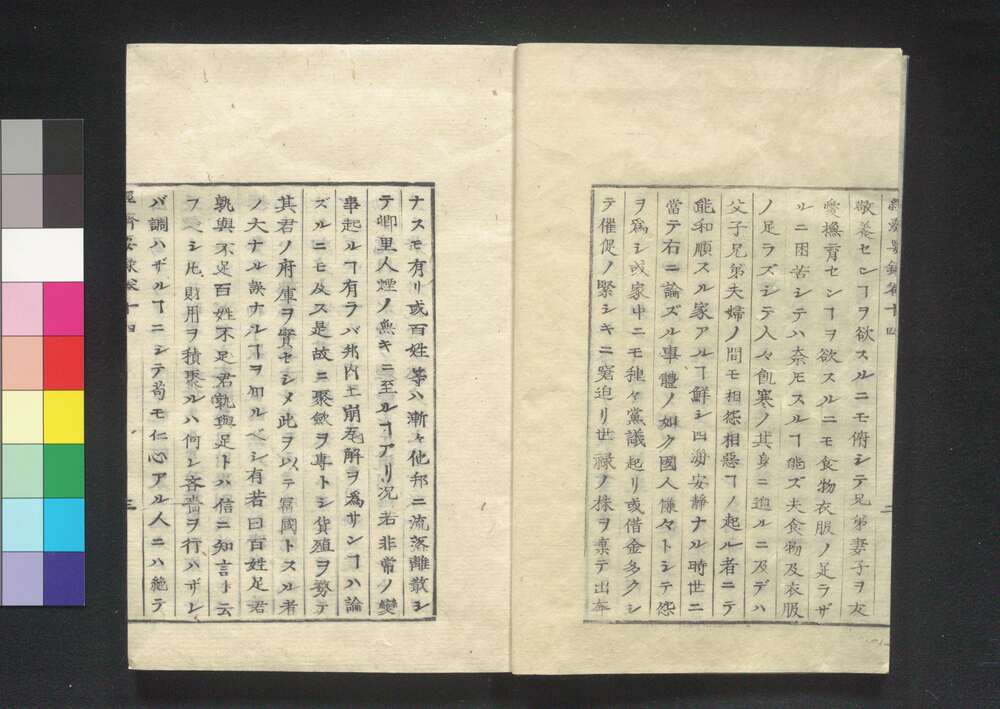 敬養セン𪜈ヲ欲スルニモ俯シテ兄弟妻子ヲ友
愛撫育センヿヲ欲スルニモ食物衣服ノ足ラザ
ルニ困苦シテハ奈𪜈スルヿ能ズ夫食物及衣服
ノ足ラズシテ人々飢寒ノ其身ニ迫ルニ及デハ
父子兄弟夫婦ノ間モ相怨相惡ヿノ起ル者ニテ
能和順スル家アルヿ鮮シ四海安靜ナル時世ニ
當テ右ニ論ズル事體ノ如ク國人慊々トシテ怨
ヲ爲シ或家中ニモ種々黨議起リ或借金多クシ
テ催促ノ緊シキニ窘迫リ世祿ノ株ヲ棄テ出奔
ナスモ有リ或百姓等ハ漸々他邦ニ流落離散シ
テ鄕里人煙ノ無キニ至ルヿアリ况若非常ノ變
事起ルヿ有ラバ邦內土崩瓦解ヲ爲サンヿハ論
ズルニモ及ズ是故ニ聚斂ヲ專トシ貨殖ヲ務テ
其君ノ府庫ヲ實セシメ此ヲ以テ富國トスル者
ノ大ナル誤ナルヿヲ知ルベシ有若曰百姓足君
孰與不足百姓不足君孰與足トハ信ニ知言ト云
フベシ𪜈財用ヲ積聚ルハ何レ吝嗇ヲ行ハザレ
バ調ハザルヿニシテ苟モ仁心アル人ニハ絶テ
十四
三